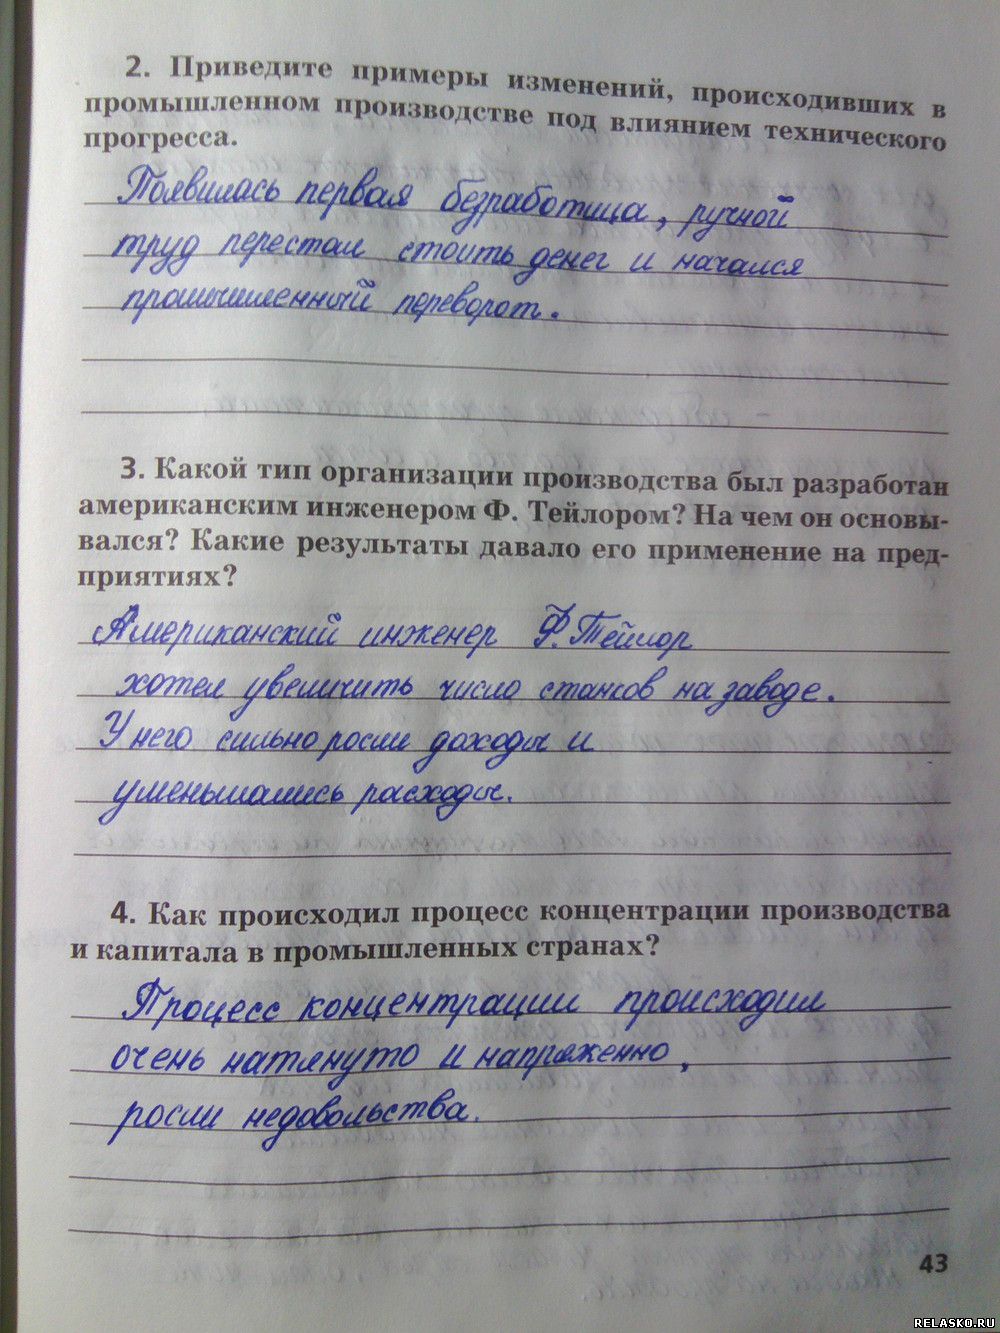 2. Приведите примеры изменений, происходивших в
промышленном производстве под влиянием технического
прогресса.
Появилась первая безработица, ручной
труд перестал стоить денег и начался
промышленный переворот.
3. Какой тип организации производства был разработан
американским инженером Ф. Тейлором? На чем он основы-
вался? Какие результаты давало его применение на пред-
приятиях?
Американский инженер Ф. Тейлор
хотел увеличить число станков на заводе.
У него сильно росли доходы и
уменьшались расходы.
4. Как происходил процесс концентрации производства
и капитала в промышленных странах?
Процесс концентрации происходил
очень натянуто и напряженно,
росли недовольства.
43
RELASKO.RU